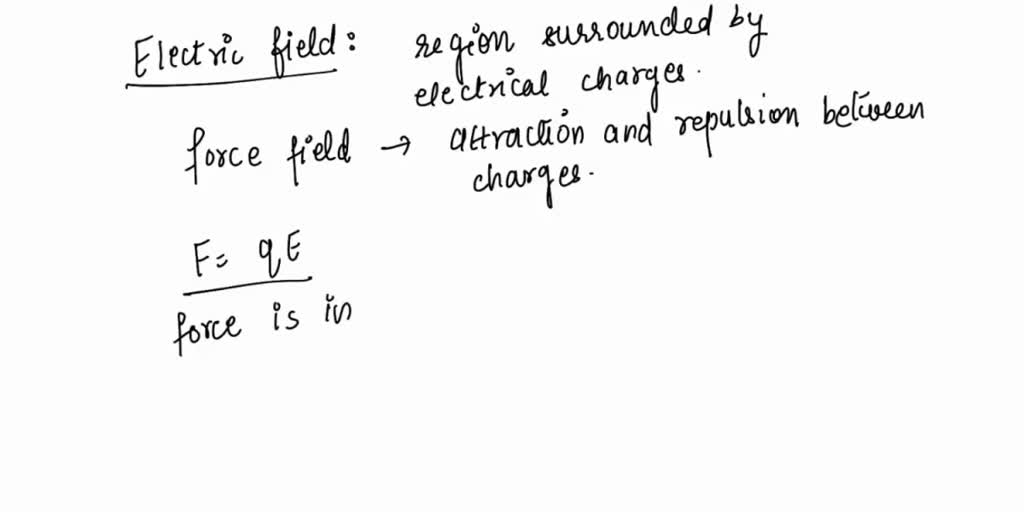 Electric field: region surrounded by
electrical charges.
force field → attraction and repulsion between
charges.
F= qE
force is in